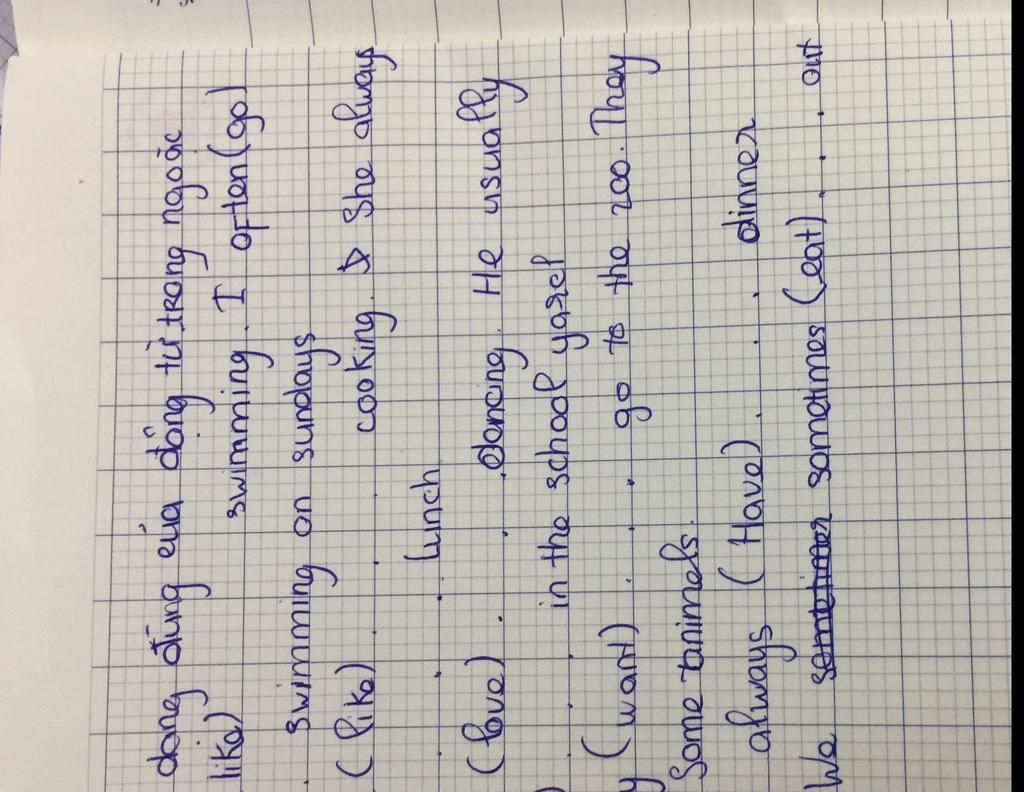 dạng đúng của động từ trong ngoặc
like) swimming. I often (go)
. swimming on sundays
(like) . . . cooking. She always
. . . Lunch
(love) . . . dancing. He usually
. . in the school yard
(want) . . . go to the zoo. They
Some animals.
always (Have) . . . dinner
We sometimes (eat) . . . out